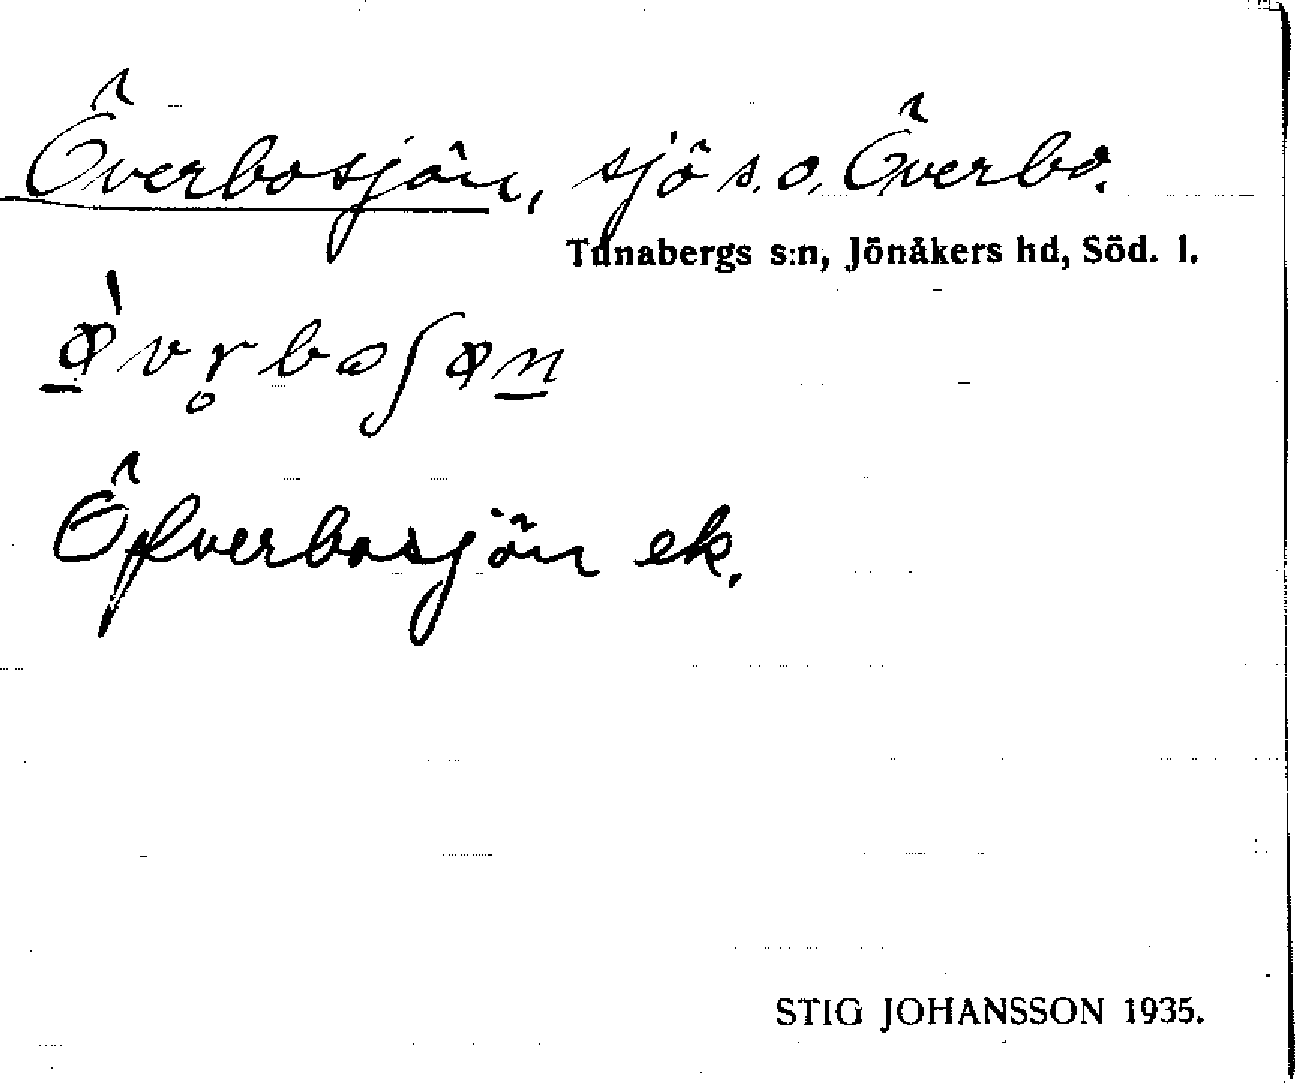 Överbosjön, sjö s.o. Överbo.
Tunabergs s:n, Jönåkers hd, Söd. l.
ø̲̀vr̥boʃøn̲
Öfverbosjön ek.
STIG JOHANSSON 1935.